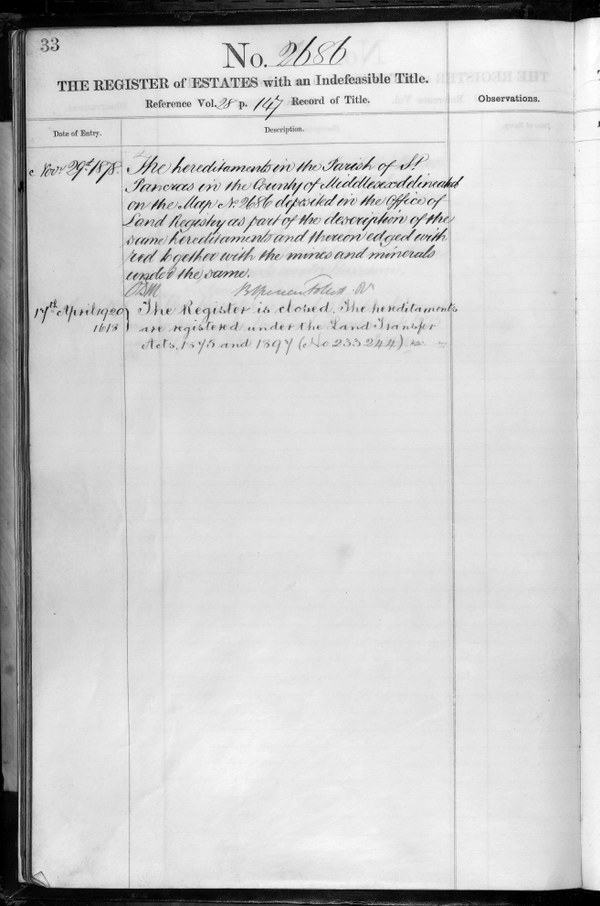 33
No. 2686
THE REGISTER of ESTATES with an Indefeasible Title.
Reference Vol. 28 p. 147 Record of Title.
Observations.
Date of Entry.
Description.
Novr 29th 1878.
The hereditaments in the Parish of St.
Pancras in the County of Middlesex delineated
on the Map No. 2686 deposited in the Office of
Land Registry as part of the description of the
same hereditaments and thereon edged with
red together with the mines and minerals
under the same.
17th April 1920
1618
The Register is closed. The hereditaments
are registered under the Land Transfer
Acts, 1875 and 1897 (No 233244)